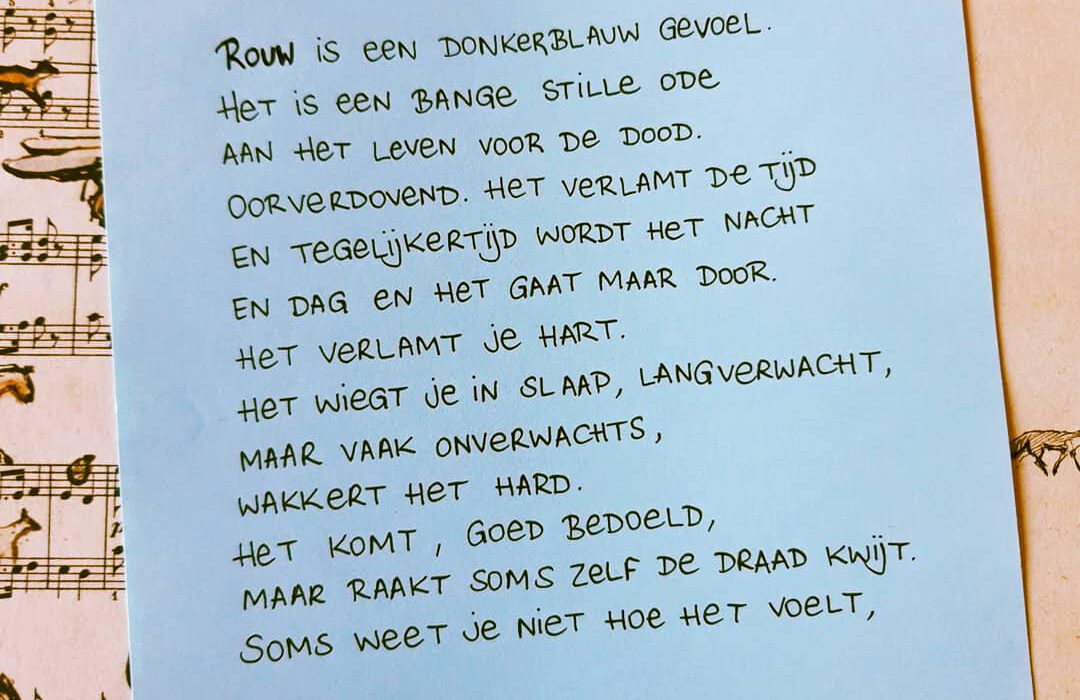 Rouw is een donkerblauw gevoel.
Het is een bange stille ode
aan het leven voor de dood.
Oorverdovend. Het verlamt de tijd
en tegelijkertijd wordt het nacht
en dag en het gaat maar door.
Het verlamt je hart.
Het wiegt je in slaap, langverwacht,
maar vaak onverwachts,
wakkert het hard.
Het komt, goed bedoeld,
maar raakt soms zelf de draad kwijt.
Soms weet je niet hoe het voelt,